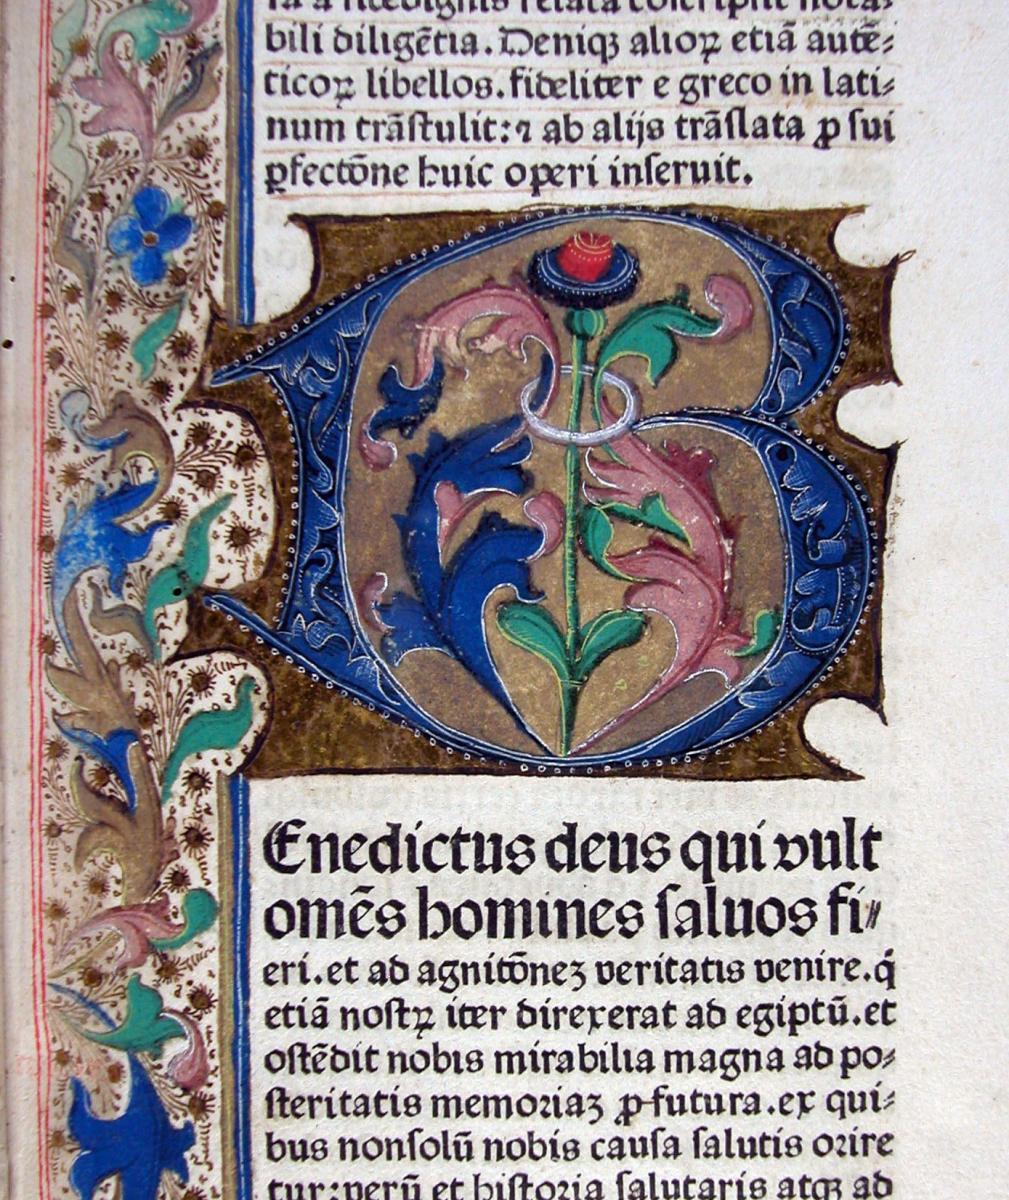 bili diligẽtia.Deniqꝫ alioꝝ etiã autẽ⸗
ticoꝝ libellos.fideliter e greco in lati⸗
num trãſtulit:⁊ ab alijs trãſlata ꝓ ſui
ꝑfectõne huic operi inſeruit.
B
Enedictus deus qui vult
omẽs homines ſaluos fi⸗
eri.et ad agnitõneꝫ veritatis venire.q̇
etiã noſtꝝ iter direxerat ad egiptũ.et
oſtẽdit nobis mirabilia magna ad po⸗
ſteritatis memoꝛiaꝫ ꝓfutura.ex qui⸗
bus nonſolũ nobis cauſa ſalutis oꝛire
tur:verũ et hiſtoꝛia ſalutaris atqꝫ ad